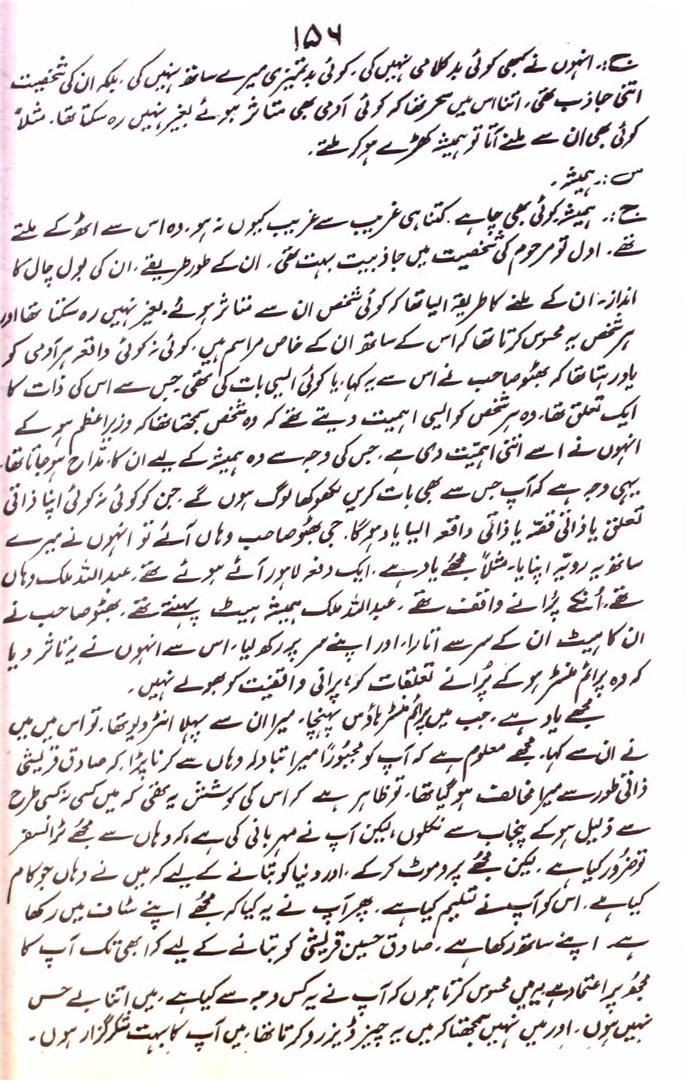 ۱۵۶
ج:۔ انہوں نے کبھی کوئی بدکلامی نہیں کی۔ کوئی بدتمیزی میرے ساتھ نہیں کی۔ بلکہ ان کی شخصیت
اتنی جاذب تھی۔ اتنا اس میں سحر تھا کہ کوئی آدمی بھی متاثر ہوئے بغیر نہیں رہ سکتا تھا۔ مثلاً
کوئی بھی ان سے ملنے آتا تو ہمیشہ کھڑے ہو کر ملتے۔
س:۔ ہمیشہ۔
ج:۔ ہمیشہ کوئی بھی چاہے کتنا ہی غریب سے غریب کیوں نہ ہو۔ وہ اس سے اٹھ کے ملتے
تھے۔ اول تو مرحوم کی شخصیت میں جاذبیت بہت تھی۔ ان کے طور طریقے۔ ان کی بول چال کا
انداز۔ ان کے ملنے کا طریقہ ایسا تھا کہ کوئی شخص ان سے متاثر ہوئے بغیر نہیں رہ سکتا تھا اور
ہر شخص یہ محسوس کرتا تھا کہ اس کے ساتھ ان کے خاص مراسم ہیں۔ کوئی نہ کوئی واقعہ ہر آدمی کو
یاد رہتا تھا کہ بھٹو صاحب نے اس سے یہ کہا۔ یا کوئی ایسی بات کی تھی جس سے اس کی ذات کا
ایک تعلق تھا۔ وہ ہر شخص کو ایسی اہمیت دیتے تھے کہ وہ شخص سمجھتا تھا کہ وزیراعظم ہو کے
انہوں نے اسے اتنی اہمیّت دی ہے۔ جس کی وجہ سے وہ ہمیشہ کے لیے ان کا مدّاح ہو جاتا تھا۔
یہی وجہ ہے کہ آپ جس سے بھی بات کریں لکھوکھا لوگ ہوں گے۔ جن کو کوئی نہ کوئی اپنا ذاتی
تعلق یا ذاتی قصّہ یا ذاتی واقعہ ایسا یاد ہوگا۔ جی بھٹو صاحب وہاں آئے تو انہوں نے میرے
ساتھ یہ رویّہ اپنایا۔ مثلاً مجھے یاد ہے۔ ایک دفعہ لاہور آئے ہوئے تھے۔ عبداللہ ملک وہاں
تھے۔ اُنکے پُرانے واقف تھے۔ عبداللہ ملک ہمیشہ ہیٹ پہنتے تھے۔ بھٹو صاحب نے
ان کا ہیٹ ان کے سر سے اتارا۔ اور اپنے سر پر رکھ لیا۔ اس سے انہوں نے یہ تاثر دیا
کہ وہ پرائم منسٹر ہو کے پُرانے تعلقات کو، پرانی واقفیت کو بھولے نہیں۔
مجھے یاد ہے۔ جب میں پرائم منسٹر ہاؤس پہنچا۔ میرا ان سے پہلا انٹرویو تھا۔ تو اس میں میں
نے ان سے کہا۔ مجھے معلوم ہے کہ آپ کو مجبوراً میرا تبادلہ وہاں سے کرنا پڑا۔ کہ صادق قریشی
ذاتی طور سے میرا مخالف ہو گیا تھا۔ تو ظاہر ہے کہ اس کی کوشش یہ تھی کہ میں کسی نہ کسی طرح
سے ذلیل ہو کے پنجاب سے نکلوں، لیکن آپ نے مہربانی کی ہے، کہ وہاں سے مجھے ٹرانسفر
تو ضرور کیا ہے۔ لیکن مجھے پروموٹ کر کے۔ اور دنیا کو بتانے کے لیے کہ میں نے وہاں جو کام
کیا ہے۔ اس کو آپ نے تسلیم کیا ہے۔ پھر آپ نے یہ کیا کہ مجھے اپنے سٹاف میں رکھا
ہے۔ اپنے ساتھ رکھا ہے۔ صادق حسین قریشی کو بتانے کے لیے کہ ابھی تک آپ کا
مجھ پر اعتماد ہے یہ میں محسوس کرتا ہوں کہ آپ نے یہ کس وجہ سے کیا ہے۔ میں اتنا بے حس
نہیں ہوں۔ اور میں نہیں سمجھتا کہ میں یہ چیز ڈیزرو کرتا تھا۔ میں آپ کا بہت شکر گزار ہوں۔